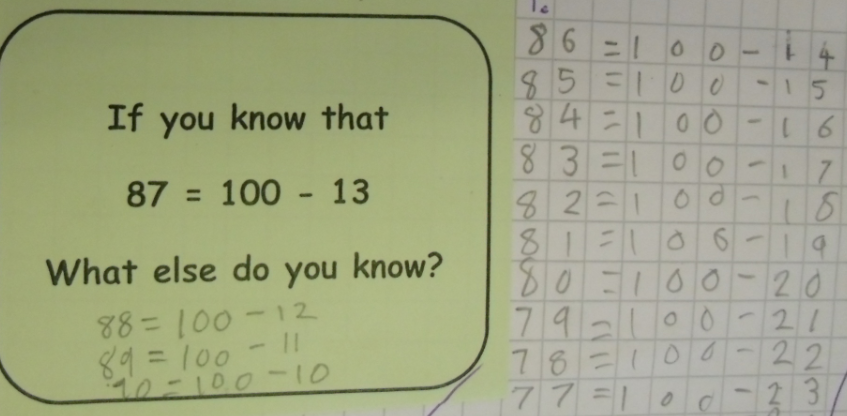 If you know that
87 = 100 - 13
What else do you know?
88 = 100 - 12
89 = 100 - 11
90 = 100 - 10
86 = 100 - 14
85 = 100 - 15
84 = 100 - 16
83 = 100 - 17
82 = 100 - 18
81 = 100 - 19
80 = 100 - 20
79 = 100 - 21
78 = 100 - 22
77 = 100 - 23